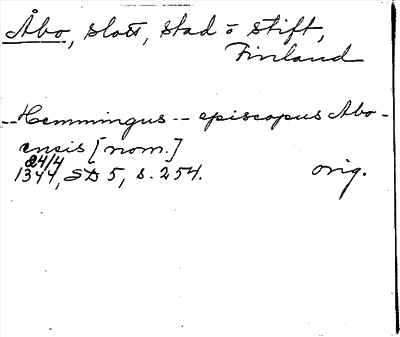 Åbo, slott, stad o stift,
Finland
-- Hemmingus -- episcopus Abo-
ensis [nom.]
24/4
1344, SD 5, s. 254. orig.